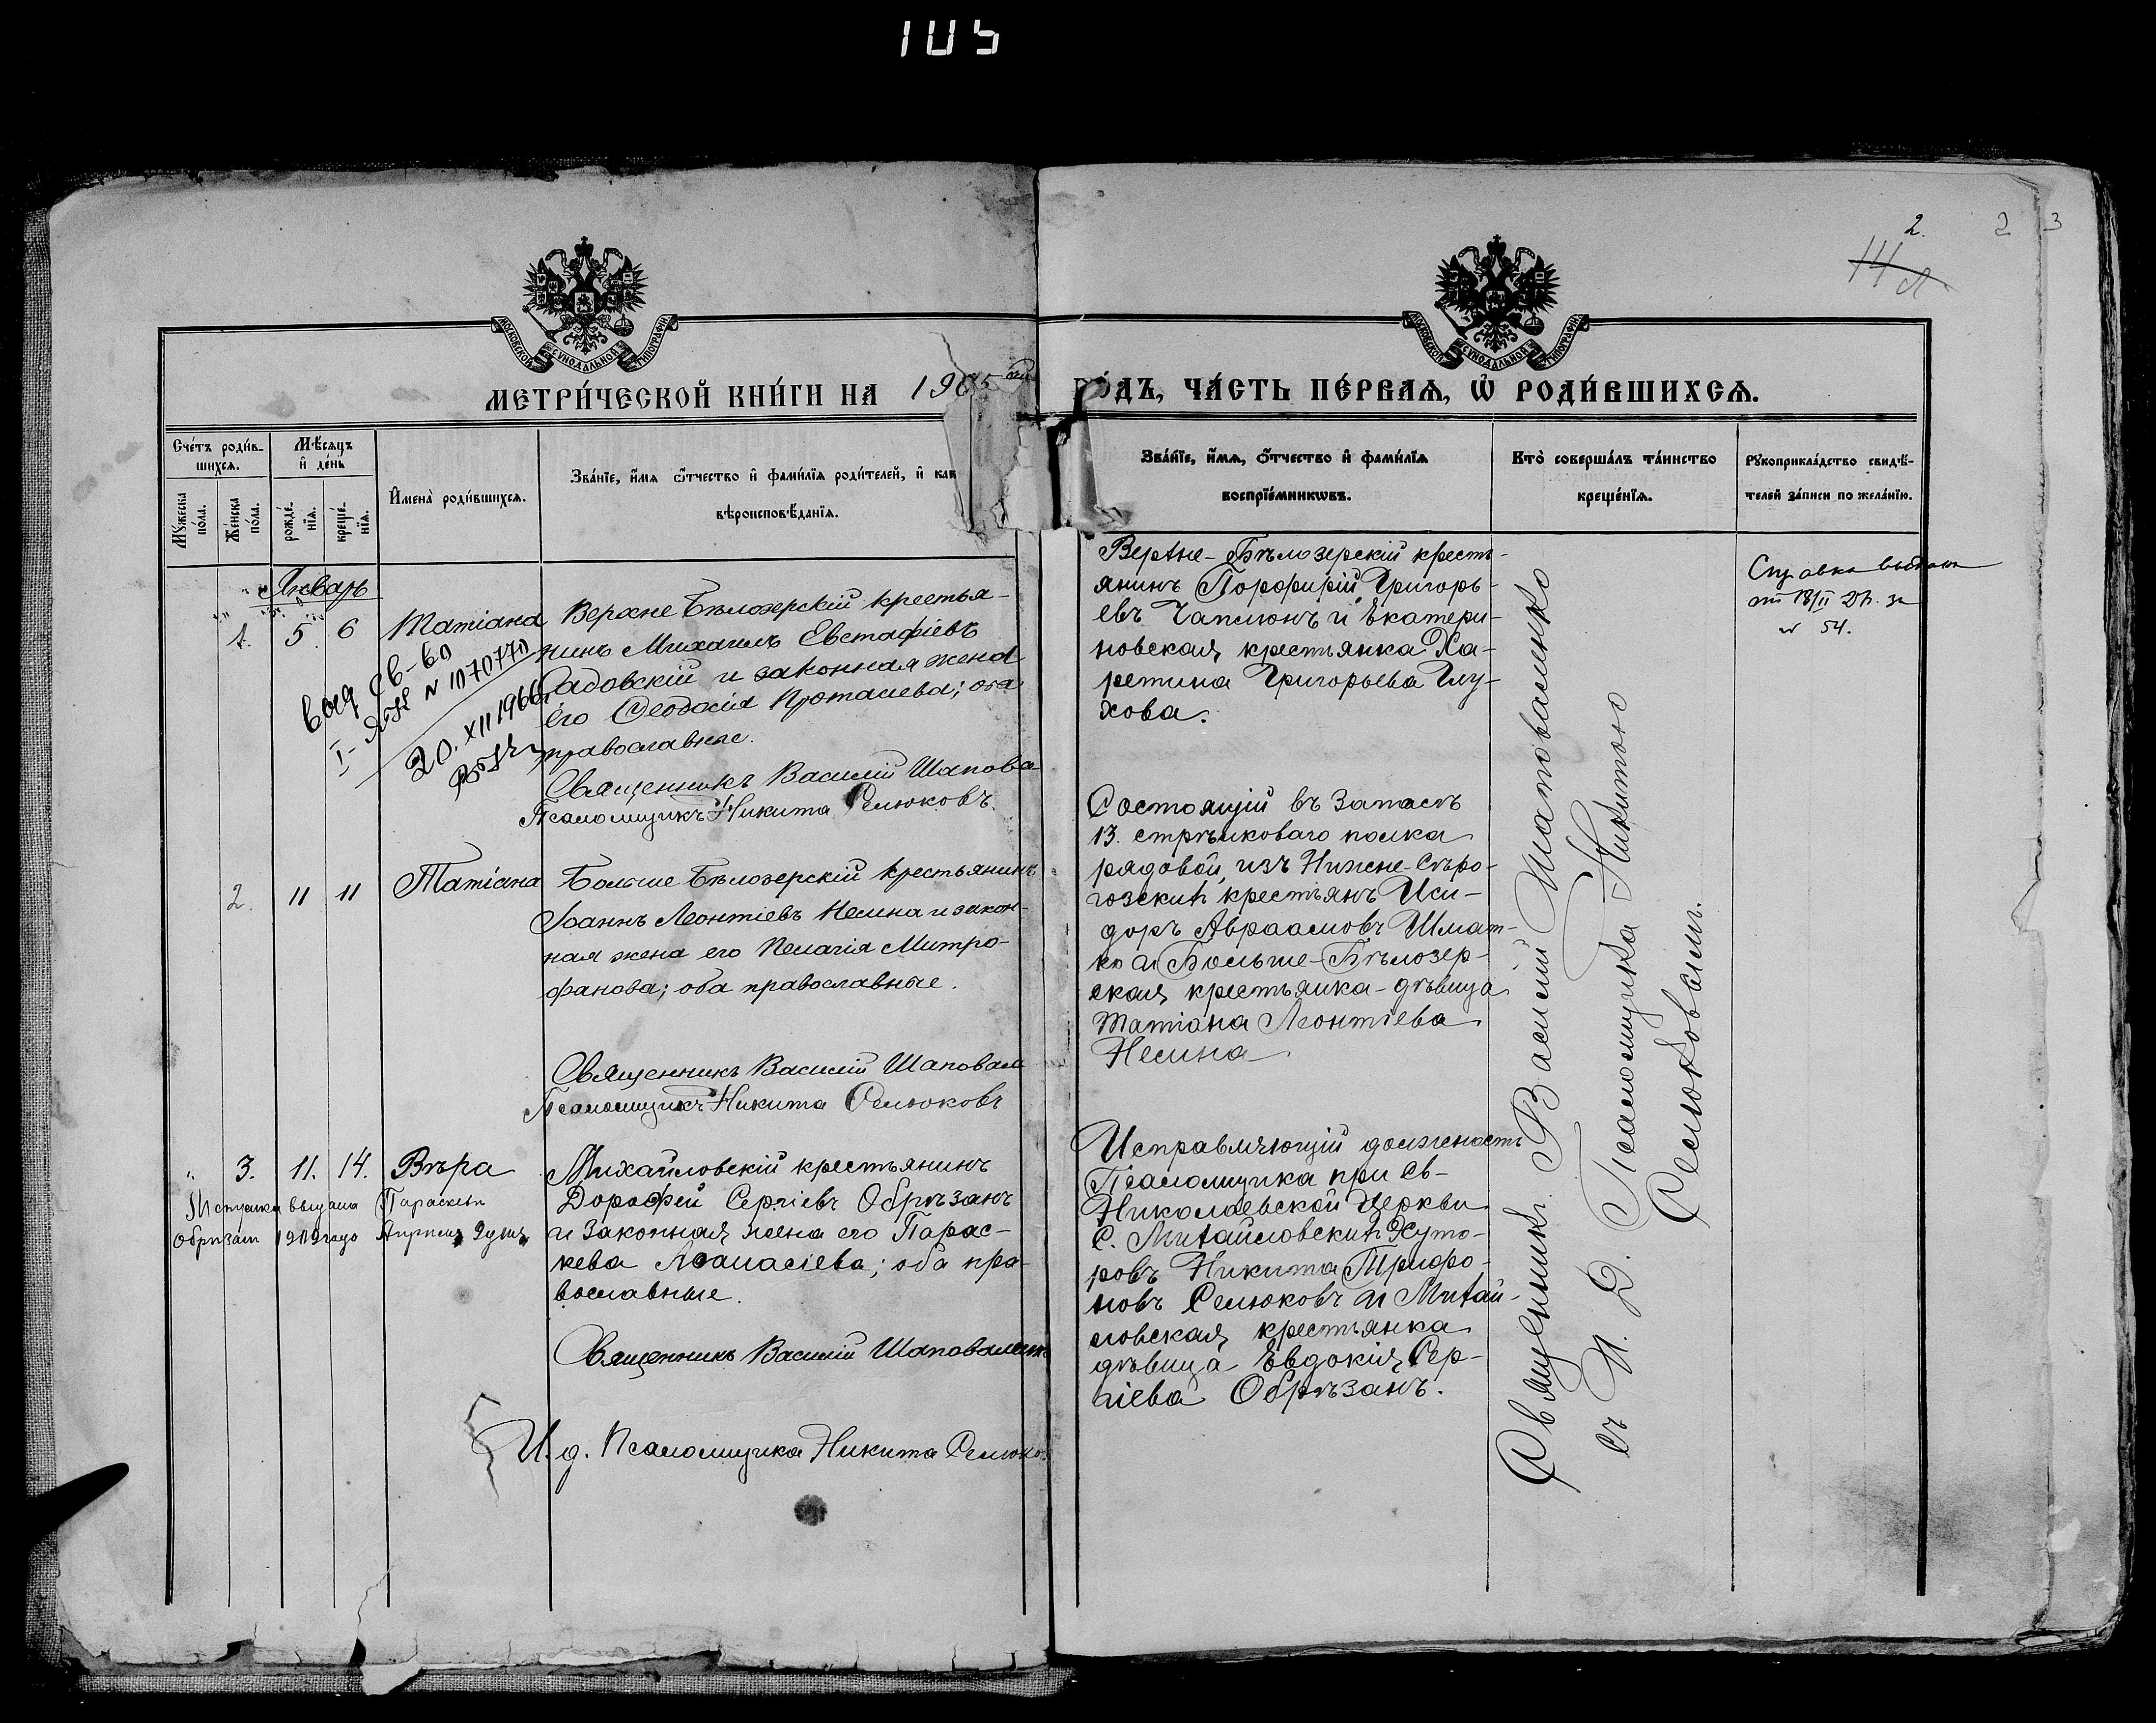 105
2.
2
3
14
МОСКОВСКОЙ СѴНОДАЛЬНОЙ ТИПОГРАФІИ
МОСКОВСКОЙ СѴНОДАЛЬНОЙ ТИПОГРАФІИ
МЕТРИ́ЧЕСКОЙ КНИ́ГИ НА 1905 ГО́ДЪ, ЧА́СТЬ ПЕ́РВАѦ, Ѡ҆ РОДИ́ВШИХСѦ.
Сче́тъ роди́в-
шихсѧ.
Мꙋ́жеска
по́ла.
Же́нска
по́ла.
Мѣ́сяцъ
и҆ де́нь
рожде́-
нїѧ.
креще́-
нїѧ.
И҆мена̀ роди́вшихсѧ.
Зва́нїе, и҆́мѧ ѻ҆́тчество и҆ фами́лїѧ роди́телей, и҆ как
вѣроисповѣ́данїѧ.
Зва́нїе, и҆́мѧ, ѻ҆́тчество и҆ фами́лїѧ
воспрїе́мникѡвъ.
Кто̀ соверша́лъ та́инство
креще́нїѧ.
Рꙋкоприкла́дство свидѣ́-
телей за́писи по жела́нїю.
Январь
1. 5 6 Татіана
Верхне Бѣлозерскій крестья-
нинъ Михаилъ Евстафіевъ
Садовскій и законная жена
его Ѳеодосія Протасіева; оба
православные.
Священникъ Василій Шапова
Псаломщикъ Никита Селюковъ.
выд св-во
I-ЯБ № 1070770
20. XII 1966
Верхне-Бѣлозерскій кресть-
янинъ Порфирій Григорь-
евъ Чаплюнъ и Екатери-
новская крестьянка Ха-
ретина Григорьева Глу-
хова.
Справка выдана
от 18/II 27г. за
№ 54.
2. 11 11 Татіана
Больше Бѣлозерскій крестьянинъ
Іоаннъ Леонтіевъ Несина и закон-
ная жена его Пелагія Митро-
фанова; оба православные.
Священникъ Василій Шаповал
Псаломщикъ Никита Селюковъ
Состоящій въ запасѣ
13. стрѣлковаго полка
рядовой, изъ Нижне-Сѣро-
гозскихъ крестьянъ Иси-
доръ Авраамовъ Шмат-
ко и Больше-Бѣлозер-
ская крестьянка-дѣвица
Татіана Леонтіева
Несина
3. 11. 14. Вѣра
Михайловскій крестьянинъ
Дороѳей Сергіевъ Обрѣзанъ
и законная жена его Парас-
кева Аѳанасіева; оба пра-
вославные.
Священникъ Василій Шаповаленк
И. д. Псаломщика Никита Селюков
выдана Параскеви
Обрѣзан 1919 года Апрѣля
Исправляющій должность
Псаломщика при Св-
Николаевской Церкви
С. Михайловскихъ Хуто-
ровъ Никита Трифо-
новъ Селюковъ и Михай-
ловская крестьянка
дѣвица Евдокія Сер-
гіева Обрѣзанъ.
Священникъ Василій Шаповаленко
съ И. Д. Псаломщика Никитою
Селюковымъ.